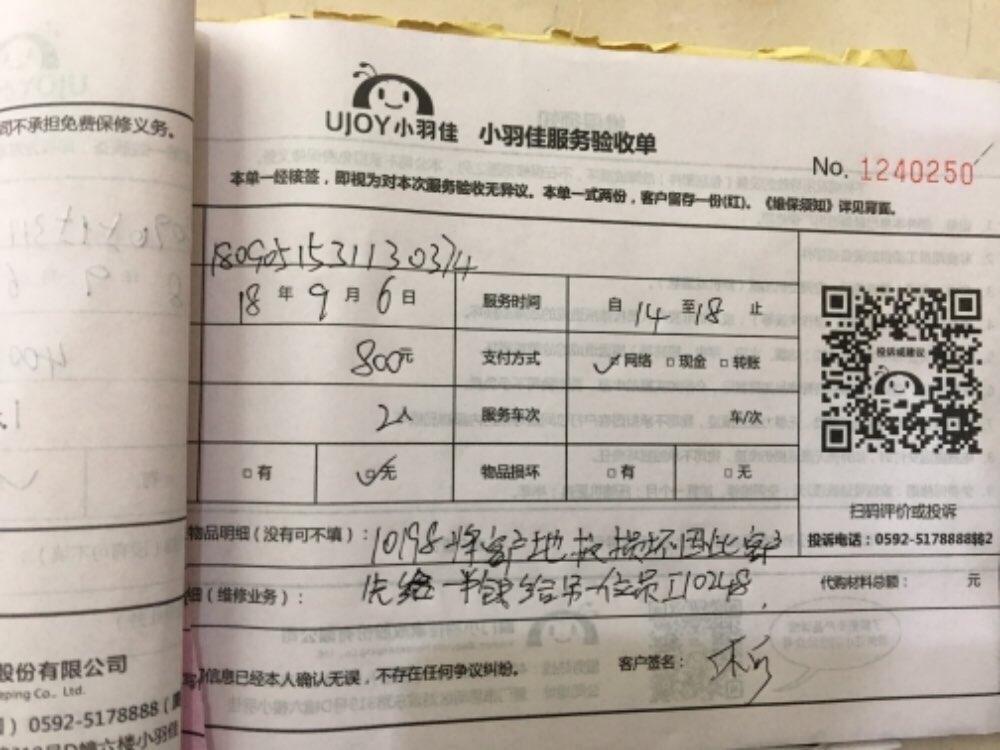 司不承担免费保修义务。
UJOY小羽佳 小羽佳服务验收单
No. 1240250
本单一经核签，即视为对本次服务验收无异议。本单一式两份，客户留存一份(红)。《维保须知》详见背面。
1809051531130374
18 年 9 月 6 日 服务时间 自 14 至 18 止
800元 支付方式 ☑网络 □现金 □转账
投诉或建议
2人 服务车次 车/次
□有 ☑无 物品损坏 □有 □无
扫码评价或投诉
物品明细（没有可不填）： 10198将客户地板损坏因此客户
投诉电话：0592-5178888转2
先给一半钱给另一位员工10248
细（维修业务）： 代购材料总额： 元
信息已经本人确认无误，不存在任何争议纠纷。 客户签名：
股份有限公司
eping Co., Ltd.
0592-5178888
号D幢六楼小羽佳